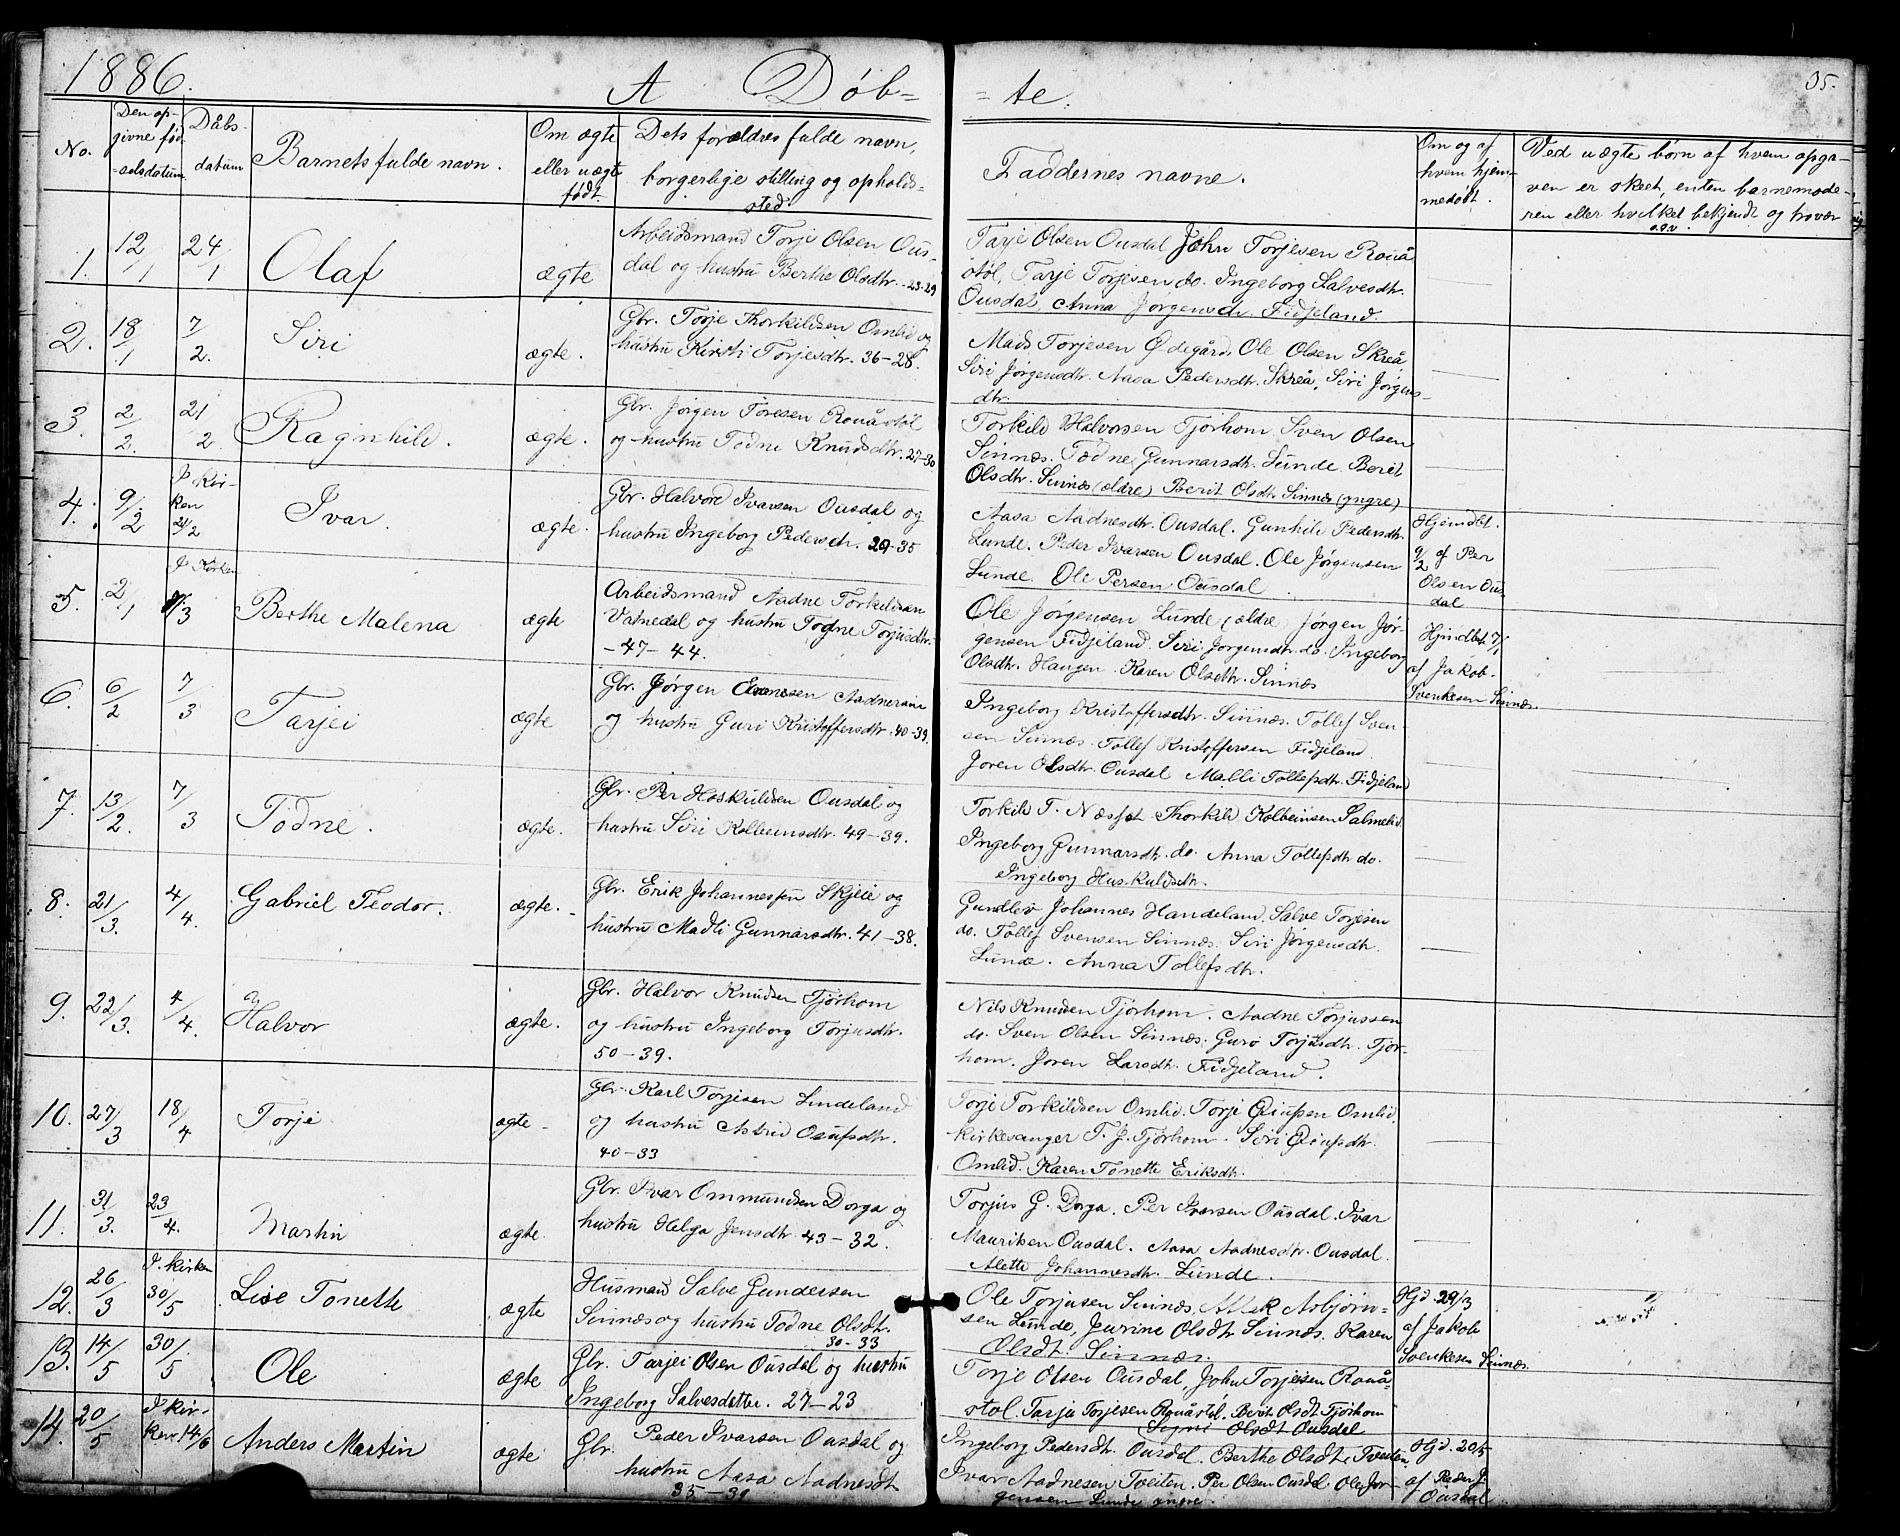 1886.
A Døb=
= te.
35.
No.
Den op-
givne fød-
=selsdatum.
Dåbs-
datum
Barnets fulde navn.
Om ægte
eller uægte
født.
Dets forældres fulde navn,
borgerlige stilling og opholds=
sted
Faddernes navne.
Om og af
hvem hjem-
medøbt.
Ved uægte børn af hvem opga-
ven er skeet, enten barnemode-
ren eller hvilket bekjendt og trovær
1. 12/1 24/1 Olaf ægte
Arbeidsmand Torje Olsen Ous-
dal og hustru Berthe Olsdtr. 23-29
Tarje Olsen Ousdal John Torjesen Rouå
støl, Tarje Torjesen do. Ingeborg Salvesdtr.
Ousdal, Anna Jørgensdr. Fidjeland.
2. 18/1 7/2. Siri ægte.
Gbr. Torje Thorkildsen Omlid og
hustru Kirsti Torjesdtr. 36-28.
Mads Torjesen Ødegård, Ole Olsen Skreå
Siri Jørgensdtr. Aasa Pedersdtr. Skreå, Siri Jørgens-
dtr.
3. 2/2. 21/2. Ragnhild. ægte.
Gbr. Jørgen Toresen Rouåstøl
og hustru Todne Knudsdtr. 27-30
Torkild Halvorsen Tjørhom Sven Olsen
Sinnæs. Todne Gunnarsdtr. Lunde Berit
Olsdtr. Sinnæs (ældre) Berit Olsdtr Sinnæs (yngre)
4. 9/2 I kir-
ken
21/2 Ivar. ægte.
Gbr. Halvord Ivarsen Ousdal og
hustru Ingeborg Pedersdr. 29-35
Aasa Aadnesdtr. Ousdal. Gunhild Pedersdtr.
Lunde. Peder Ivarsen Ousdal. Ole Jørgensen
Lunde. Ole Persen Ousdal.
Hjemdbt.
9/2 af Per
Olsen Ous
dal
5. 2/1 I Kirken
7/3 Berthe Malena ægte
Arbeidsmand Aadne Torkildsen
Vatnedal og hustru Todne Torjusdtr.
-47-44.
Ole Jørgensen Lunde (ældre Jørgen Jør-
gensen Fidjeland. Siri Jørgensdtr. do. Ingeborg
Olsdtr. Haugen. Karen Olsdtr. Sinnæs
Hjmdbt. 7/1
af Jakob
Svenkesen Sinnæs
6. 6/2 7/3 Tarjei ægte
Gbr. Jørgen Aadneram
og hustru Guri Kristoffersdtr. 40-39.
Ingeborg Kristoffersdtr. Sinnæs. Tollef Sven-
sen Sinnæs. Tollef Kristoffersen Fidjeland
Joren Olsdtr. Ousdal Malli Tollefsdtr. Fidjeland
7. 13/2. 7/3 Todne. ægte.
Gbr. Per Hoskuldsen Ousdal og
hustru Siri Kolbeinsdtr. 49-39.
Torkild T. Næsset Thorkild Kolbeinsen Salmelid.
Ingeborg Gunnarsdtr. do. Anna Tollefsdtr do.
Ingeborg Huskuldsdtr.
8. 21/3. 4/4. Gabriel Teodor. ægte.
Gbr. Erik Johannessen Skjeie og
hustru Madli Gunnarsdtr. 41-38.
Gundlev Johannes Handeland, Salve Torjesen
do. Tollef Svensen Sinnæs. Siri Jørgensdtr.
Lunde. Anna Tollefsdtr.
9. 22/3. 4/4. Halvor ægte.
Gbr. Halvor Knudsen Tjørhom
og hustru Ingeborg Torjusdtr.
50-39.
Nils Knudsen Tjørhom. Aadne Torjussen
do. Sven Olsen Sinnæs. Guro Torjusdtr. Tjør-
hom. Joren Larsdtr. Fidjeland.
10. 27/3 18/4 Torje ægte
Gbr. Karl Torjesen Lindeland
og hustru Astrid Osufsdtr.
40-33
Torje Torkildsen Omlid. Torje Omlid.
kirkesanger T. J. Tjørhom. Siri
Omlid. Karen Tonette Eriksdtr.
11. 31/3. 23/4. Martin ægte
Gbr. Ivar Ommundsen Dorga og
hustru Helga Jensdtr. 43-32.
Torjus G. Dorga. Per Ivarsen Ousdal. Ivar
Mauritsen Ousdal. Aasa Aadnesdtr. Ousdal.
Alette Johannesdtr. Lunde.
12. 26/3 I kirken
30/5 Lise Tonette ægte
Husmand Salve Gundersen
Sinnæs og hustru Todne Olsdt.
30-33
Ole Torjusen Sinnæs, Atlak Asbjørn=
sen Lunde, Jurine Olsdtr Sinnæs. Karen
Olsdt. Sinnæs.
Hjd. 29/3
af Jakob
Svenkesen Sinnæs.
13. 14/5 30/5 Ole ægte
Gbr. Tarjei Olsen Ousdal og hustru
Ingeborg Salvesdatter. 27-23
Torje Olsen Ousdal, John Torjesen Rouå-
støl. Tarju Torjesen Rouåstøl, Berit Olsdt. Tjørhom
Signi Olsdt Ousdal
14. 20/5 I kir-
ken 14/6 Anders Martin ægte
Gbr. Peder Ivarsen Ousdal og
hustru Aasa Aadnesdt
35-39
Ingeborg Pedersdt. Ousdal. Berthe Olsdt. Tveiten.
Ivar Aadnesen Tveiten. Per Olsen Ousdal. Ole Jør-
gensen Lunde yngre.
Hjd. 20/5
af Peder J.
Ousdal